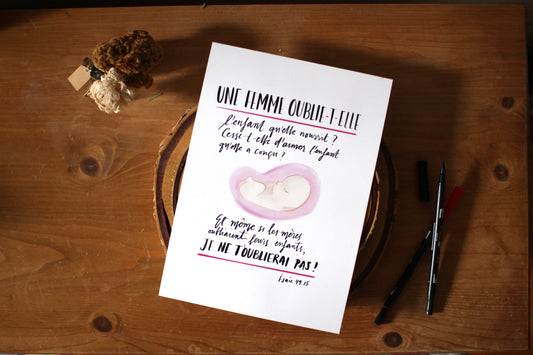 UNE FEMME OUBLIE-T-ELLE
l'enfant qu'elle nourrit ?
Cesse-t-elle d'aimer l'enfant
qu'elle a conçu ?
Et même si les mères
oubliaient leurs enfants,
JE NE T'OUBLIERAI PAS !
Esaïe 49.15